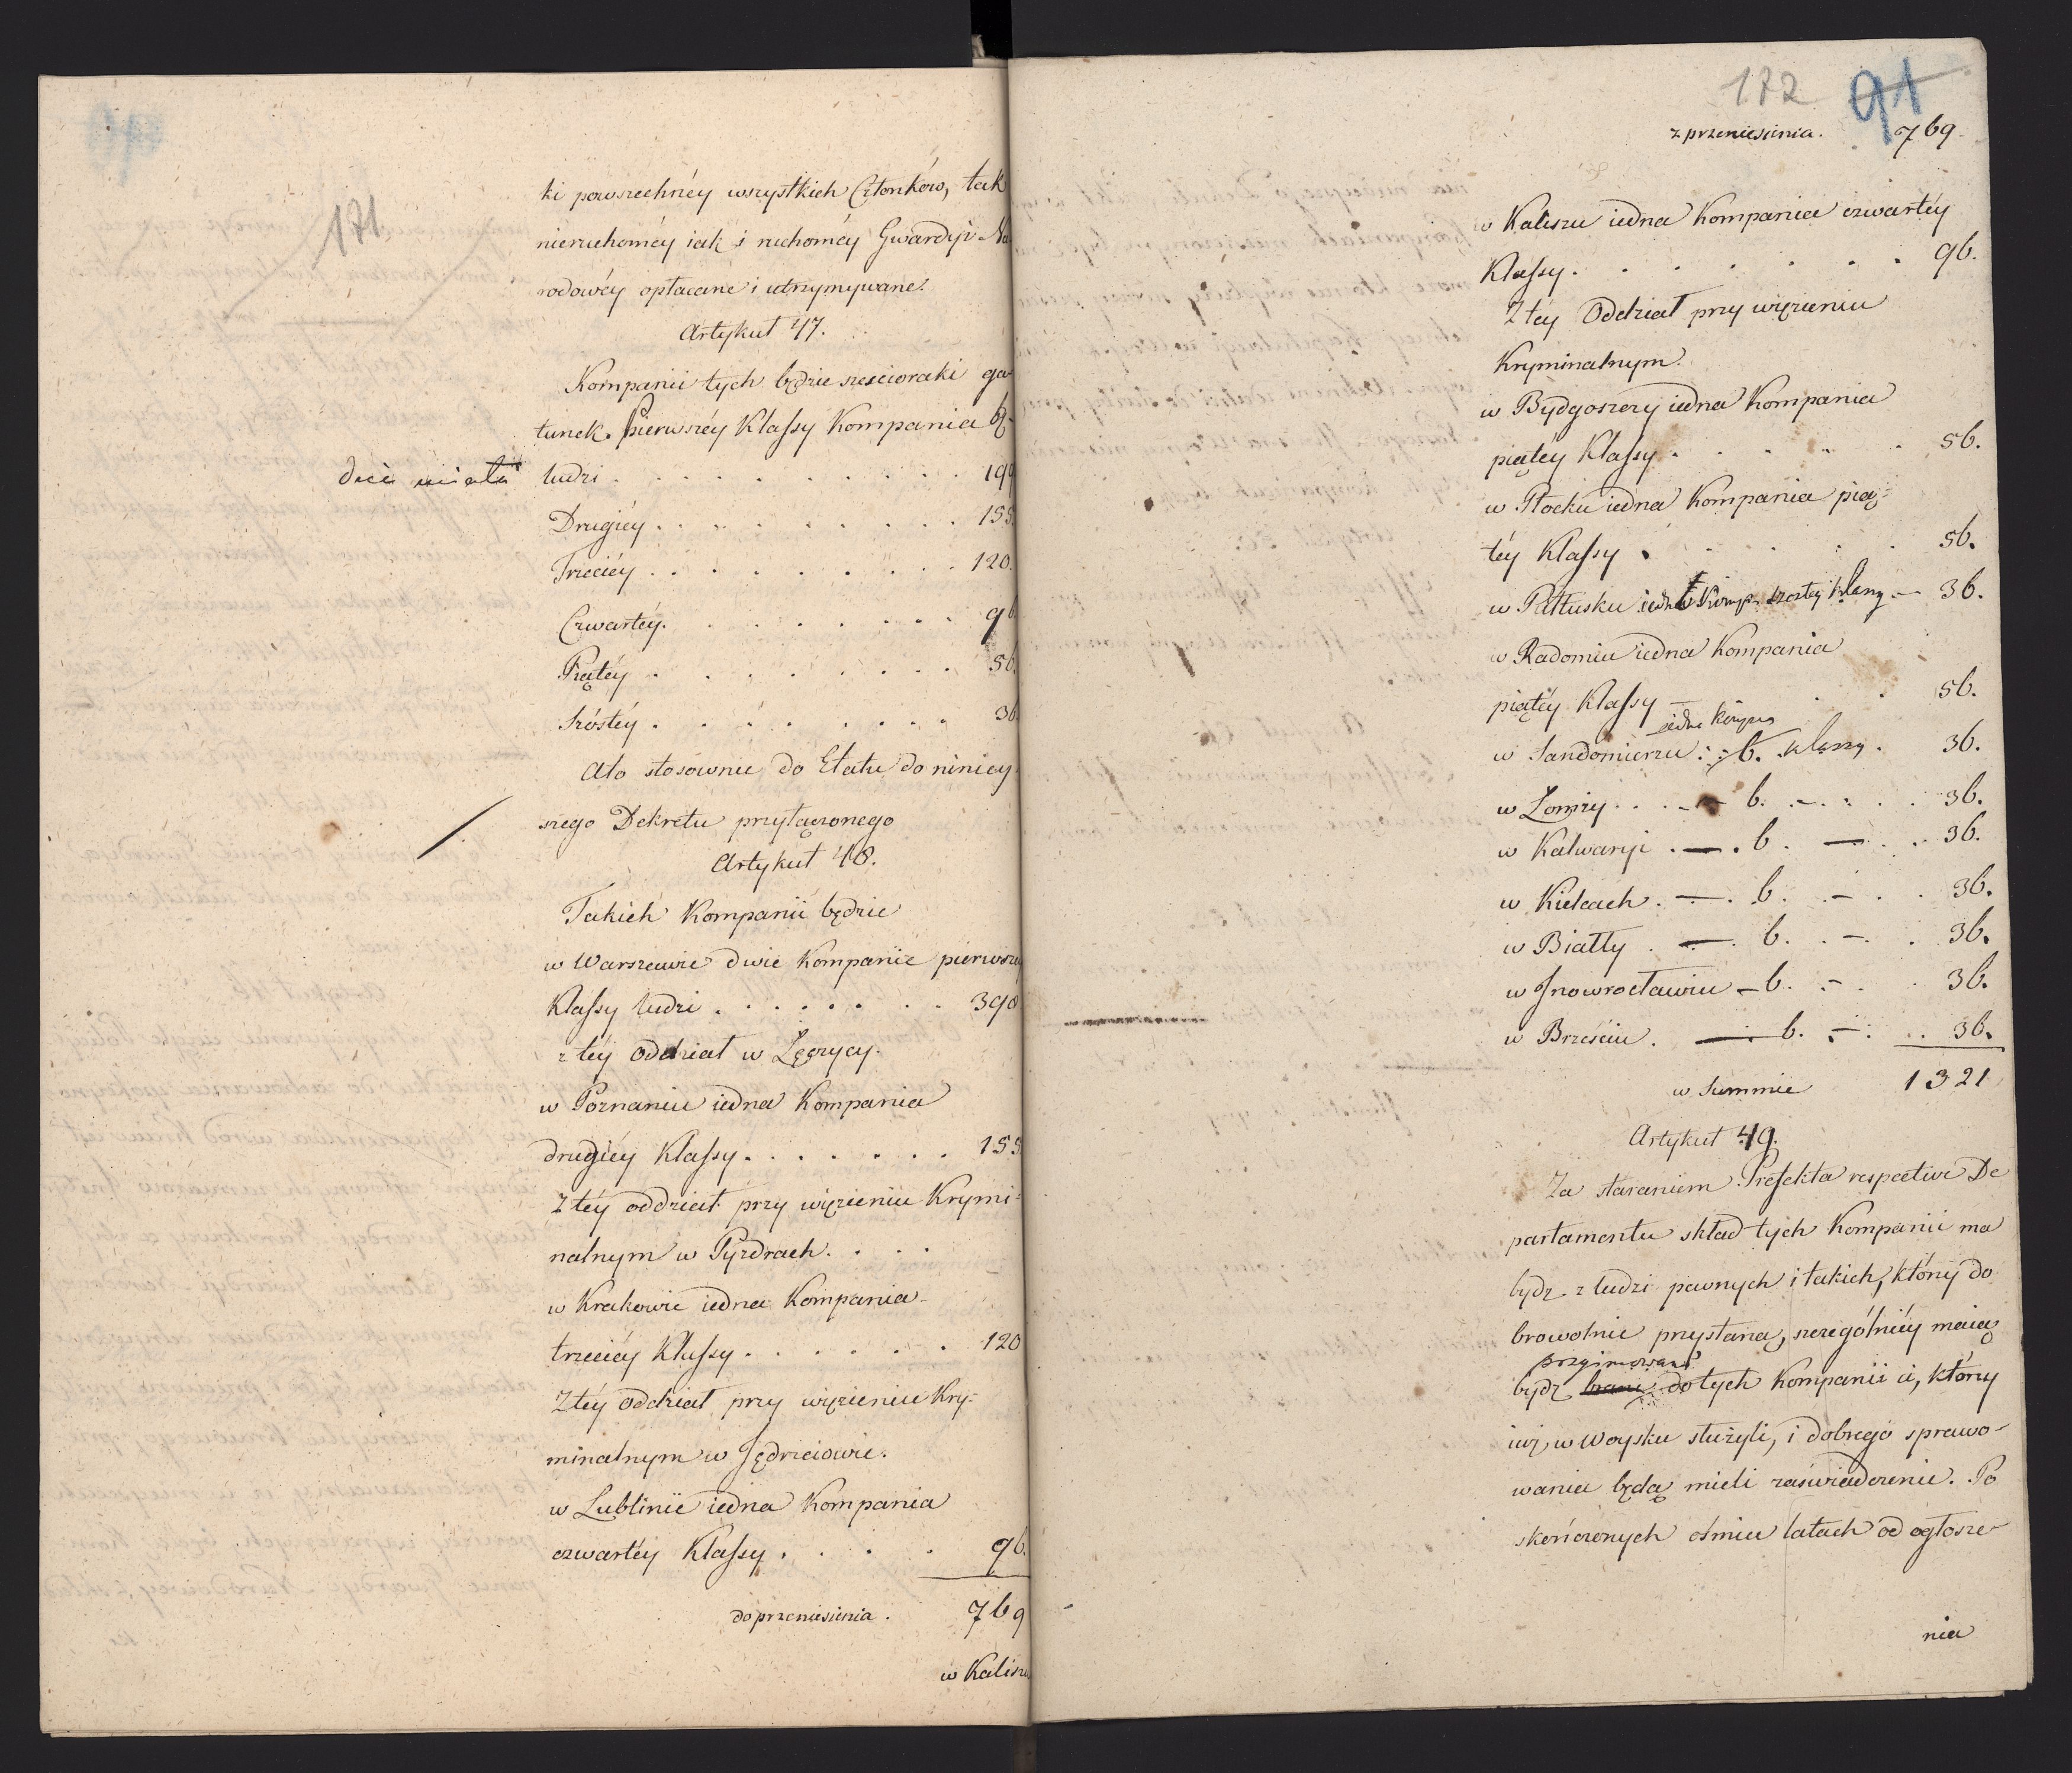 171
ki powszechnéy wszystkich Członków, tak
nieruchoméy iak i ruchoméy Gwardyi Na
rodowéy opłacane i utrzymywane.
Artykuł 47.
Kompanii tych będzie sześcioraki ga-
tunek. Pierwszéy Klassy Kompania bę-
dzie miała ludzi . . . . . . . . . . 199
Drugiéy . . . . . . . . . 155
Trzeciéy . . . . . . . . . 120.
Czwartéy . . . . . . . . 96
Piątéy . . . . . . . . 56.
Szóstéy . . . . . . . . 36
Ato stosownie do Etatu do niniey
szego Dekretu przyłączonego
Artykuł 48.
Takich Kompanii będzie
w Warszawie dwie Kompanie pierwszéy
Klassy ludzi . . . . . . . . 398
z téy oddział w Łęczycy.
w Poznaniu iedna Kompania
drugiéy Klassy . . . . . . . 155
Z téy oddział przy więzieniu Krymi-
nalnym w Pyzdrach. . . .
w Krakowie iedna Kompania
trzeciéy Klassy . . . . . . 120
Z téy oddział przy więzieniu Kry-
minalnym w Jędrzeiowie.
w Lublinie iedna Kompania
czwartéy Klassy . . . . 96.
do przeniesienia . 769
w Kaliszu
172 91
z przeniesienia. 769.
w Kaliszu iedna Kompania czwartéy
Klassy . . . . . . . 96.
Z téy Oddział przy więzieniu
Kryminalnym.
w Bydgoszczy iedna Kompania
piątéy Klassy . . . . . 56.
w Płocku iedna Kompania pią-
téy Klassy . . . . . 56.
w Pułtusku iedna Komp. szostey klassy — 36.
w Radomiu iedna Kompania
piątéy Klassy — . . 56.
iedna Kompa
w Sandomierzu : 6. klassy . 36.
w Łomży . . . — 6. — . . . 36.
w Kalwaryi . — . 6. — . . 36.
w Kielcach . — . 6. . — . . 36.
w Biały . — . 6. . — . . 36.
w Jnowrocławiu — 6. . — . . 36.
w Brześciu . — . 6. . — . . . 36.
w Summie 1321
Artykuł 49.
Za staraniem Prefekta respective De
partamentu skład tych Kompanii ma
bydz z ludzi pewnych i takich, który do
browolnie przystaną, szczególniéy maią
przyimowani
bydz brani do tych Kompanii ci, którzy
iuż w Woysku służyli, i dobrego sprawo-
wania będą mieli zaświadczenie. Po
skończonych ośmiu latach od ogłosze-
nia